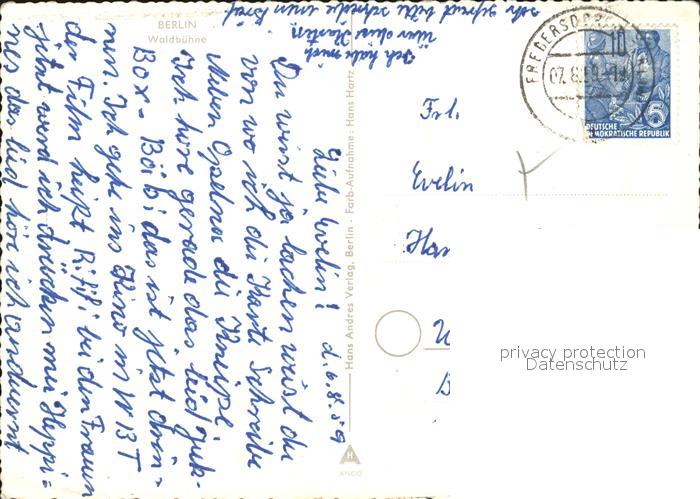 BERLIN
Waldbühne
Liebe Evelin! d. 6.8.59
Du wirst ja lachen weist du
von wo ich die Karte schreibe
neben Opelna die Kneipe
Ich höre gerade das leid Juk-
Box - Bäbi das ist jetzt drön-
nen. Ich gehe ins Kino in WBT
der Film heißt Rififi bei den Fraun
jetzt werd ich drücken mei Heppi-
nes das lied hör ich andauernt
Ich hab mich
über deine Karte
sehr gefreut bitte schreibe einen Brief
Hans Andres Verlag, Berlin - Farb-Aufnahme: Hans Hartz
ANCO
FREDERSDORF
07.8.59
10
5
DEUTSCHE
DEMOKRATISCHE REPUBLIK
Frl.
Evelin
Ha
privacy protection
Datenschutz